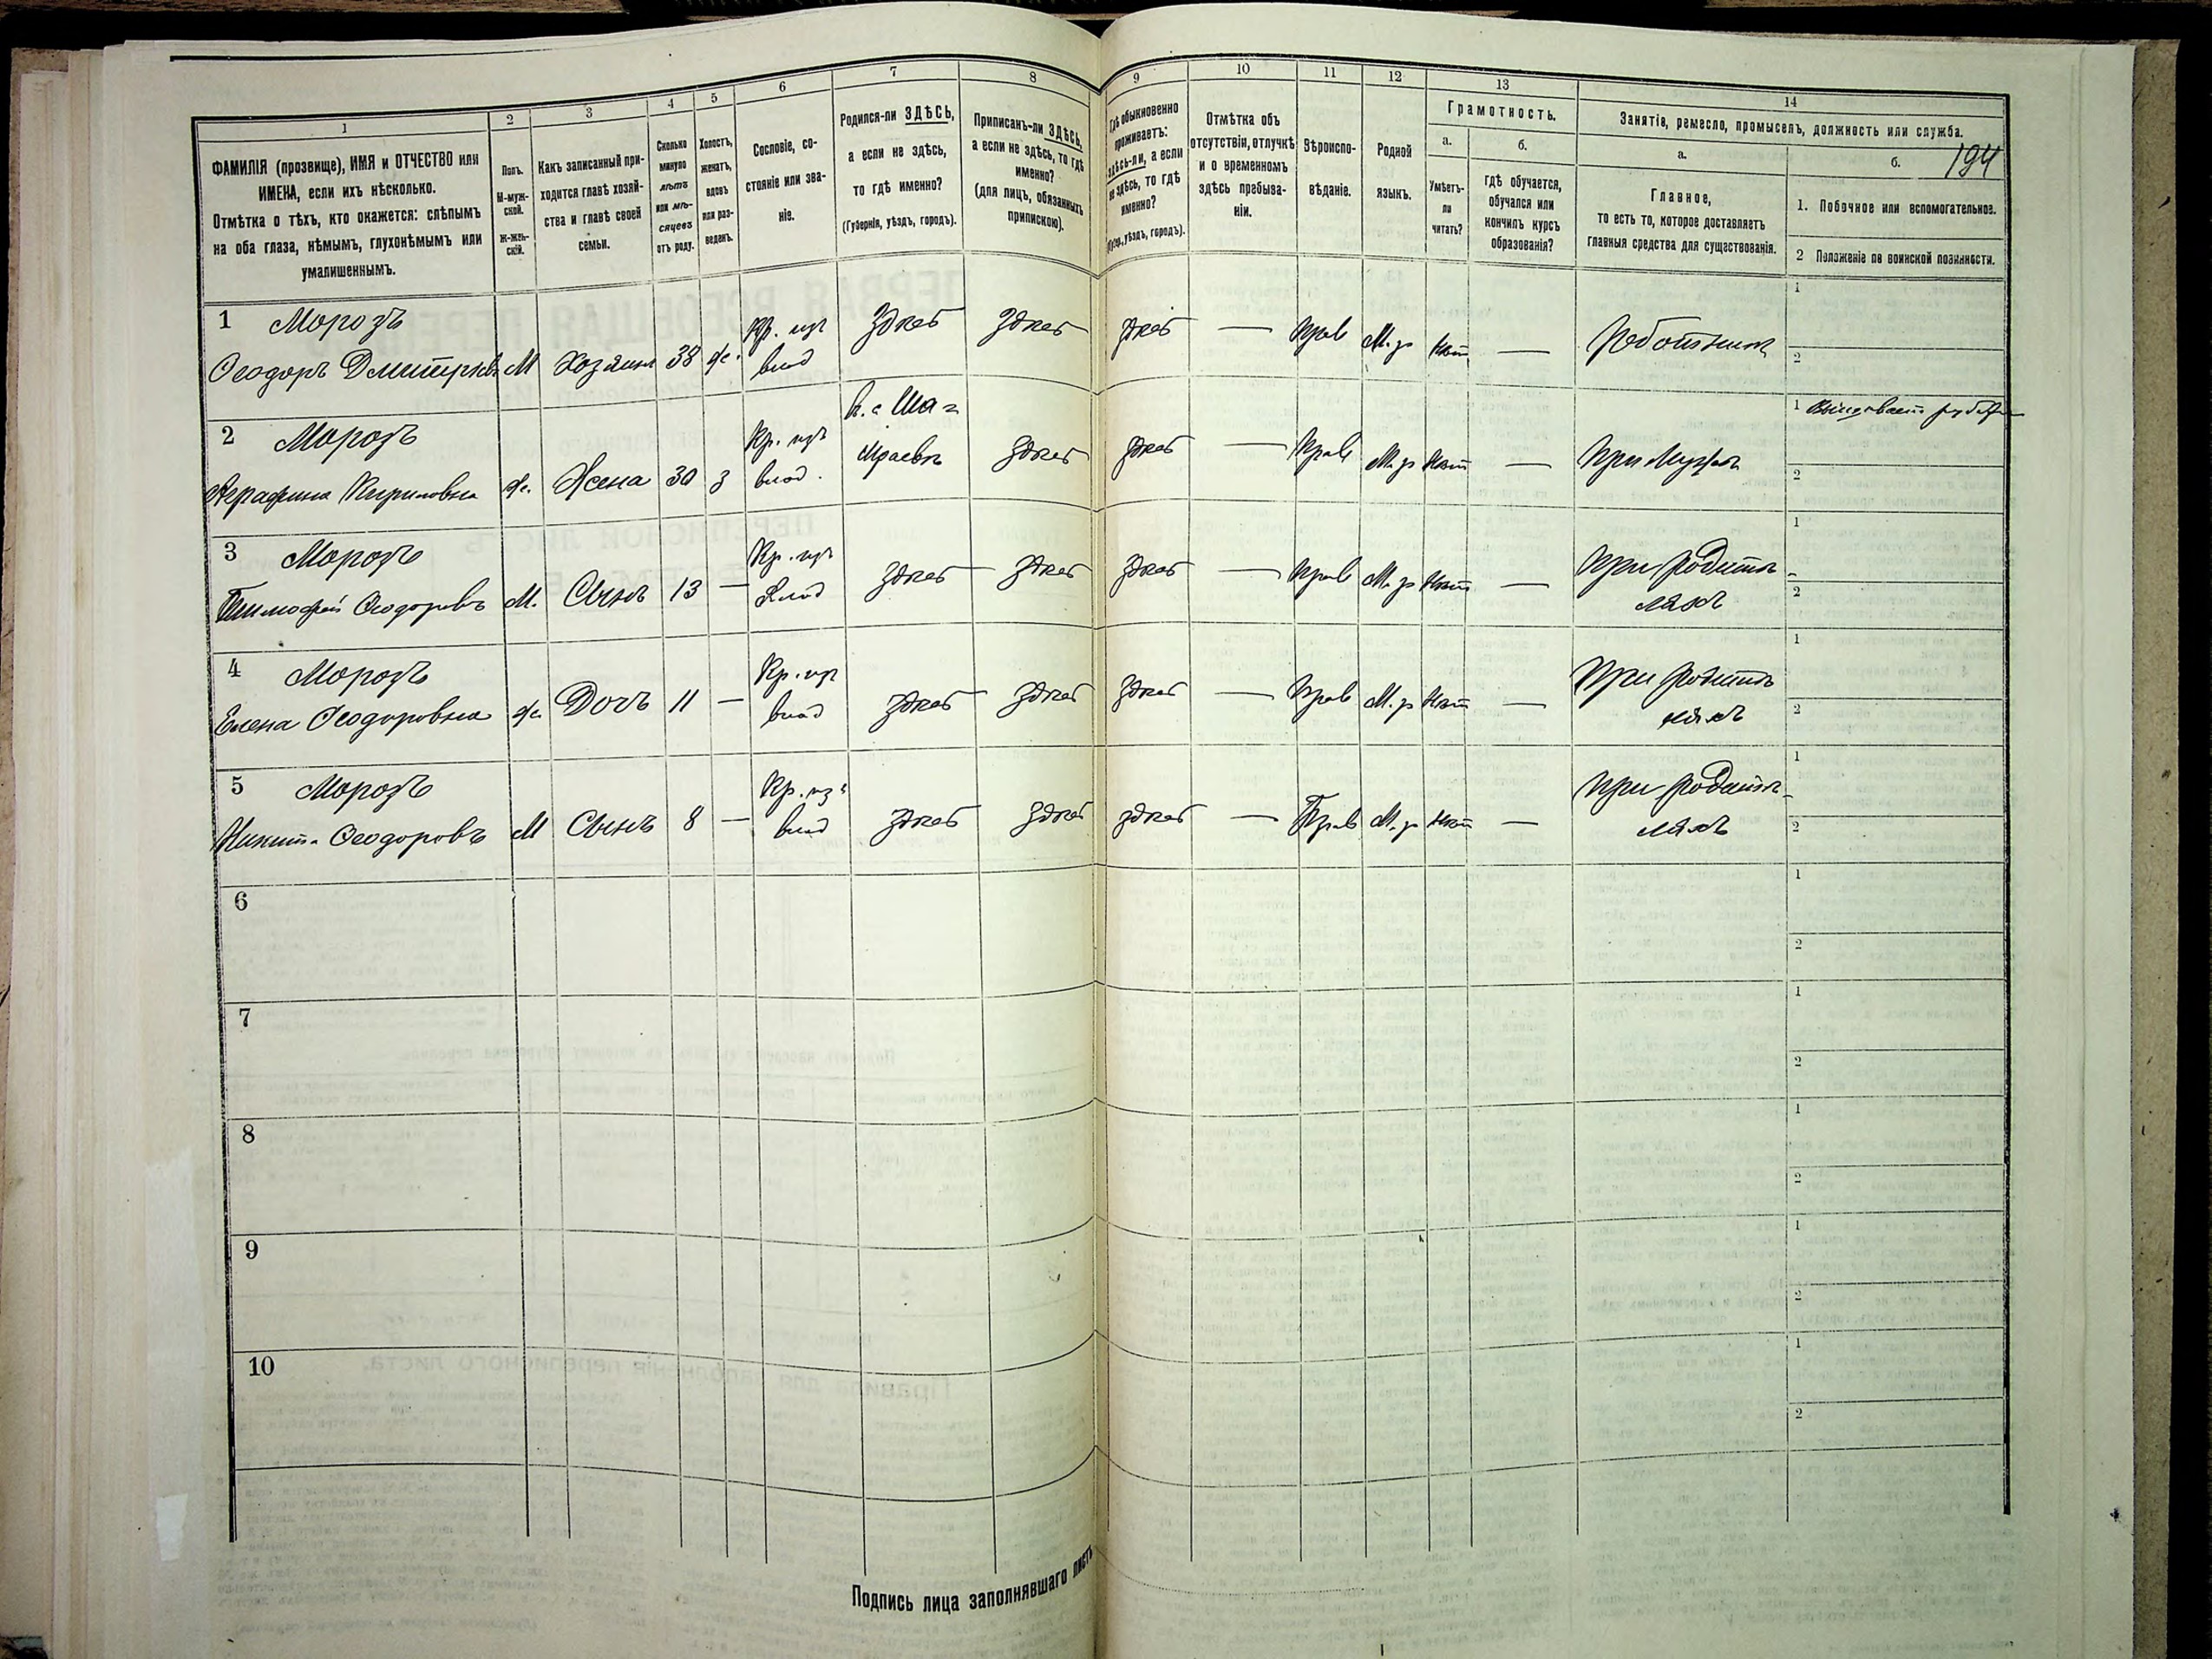 1
2
3
4
5
6
7
8
9
10
11
12
13
14
ФАМИЛІЯ (прозвище), ИМЯ и ОТЧЕСТВО или
ИМЕНА, если ихъ нѣсколько.
Отмѣтка о тѣхъ, кто окажется: слѣпымъ
на оба глаза, нѣмымъ, глухонѣмымъ или
умалишеннымъ.
Полъ.
М-муж-
ской.
Ж-жен-
скій.
Какъ записанный при-
ходится главѣ хозяй-
ства и главѣ своей
семьи.
Сколько
минуло
лѣтъ
или мѣ-
сяцевъ
отъ роду.
Холостъ,
женатъ,
вдовъ
или раз-
веденъ.
Сословіе, со-
стояніе или зва-
ніе.
Родился-ли ЗДѢСЬ,
а если не здѣсь,
то гдѣ именно?
(Губернія, уѣздъ, городъ).
Приписанъ-ли ЗДѢСЬ,
а если не здѣсь, то гдѣ
именно?
(для лицъ, обязанныхъ
припискою).
Гдѣ обыкновенно
проживаетъ:
здѣсь-ли, а если
не здѣсь, то гдѣ
именно?
(Губ., уѣздъ, городъ).
Отмѣтка объ
отсутствіи, отлучкѣ
и о временномъ
здѣсь пребыва-
ніи.
Вѣроиспо-
вѣданіе.
Родной
языкъ.
Грамотность.
а.
Умѣетъ-
ли
читать?
б.
гдѣ обучается,
обучался или
кончилъ курсъ
образованія?
Занятіе, ремесло, промыселъ, должность или служба.
а.
Главное,
то есть то, которое доставляетъ
главныя средства для существованія.
б.
194
1. Побочное или вспомогательное.
2 Положеніе по воинской повинности.
1 Морозъ
Ѳеодоръ Дмитріевъ М Хозяинъ 38 ж. Кр. изъ влад здѣсь здѣсь здѣсь — Прав М.р нѣт — Работникъ
1
2
2 Морозъ
Аграфина Кириловна ж. Жена 30 з Кр. изъ влад. здѣсь здѣсь — Прав М.р нѣт — При мужѣ
1
2
3 Морозъ
Тимофей Ѳеодоровъ М. Сынъ 13 — Кр. изъ влад здѣсь здѣсь здѣсь — Прав М.р нѣт — При родите-
ляхъ
1
2
4 Морозъ
Елена Ѳеодоровна ж. Дочь 11 — Кр. изъ влад здѣсь здѣсь здѣсь — Прав М.р нѣт — При родите-
ляхъ
1
2
5 Морозъ
Никита Ѳеодоровъ М Сынъ 8 — Кр. изъ влад здѣсь здѣсь здѣсь — Прав М.р нѣт — При родите-
ляхъ
1
2
6
1
2
7
1
2
8
1
2
9
1
2
10
1
2
Подпись лица заполнявшаго листъ